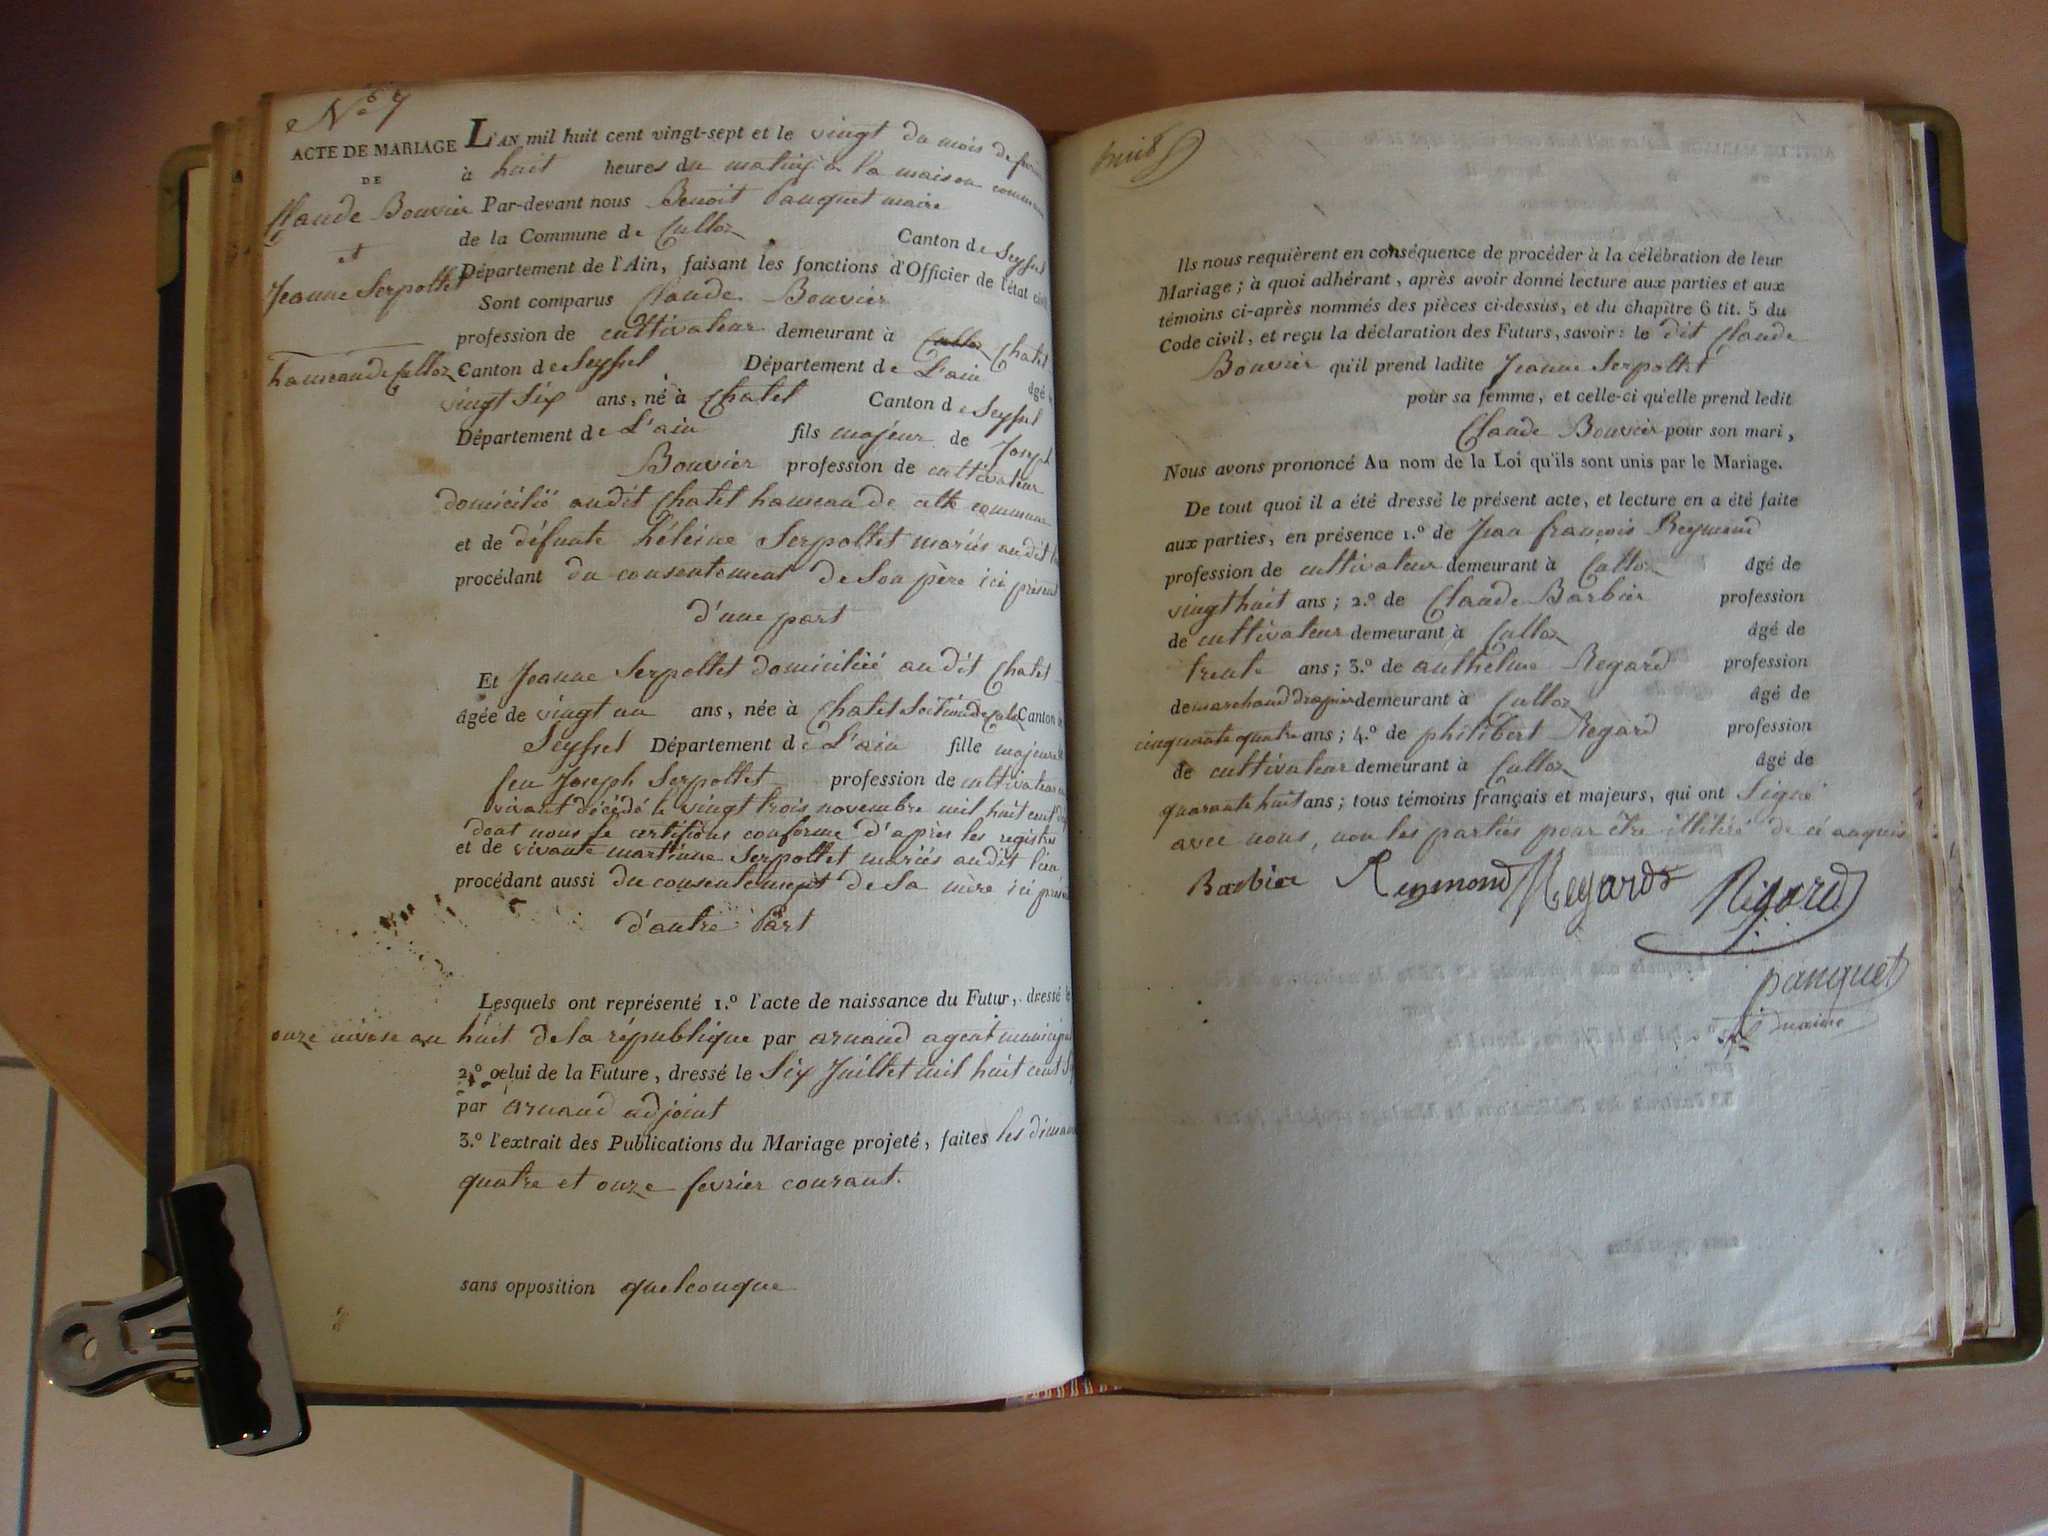 N° 7
ACTE DE MARIAGE
DE
Claude Bouvier
et
Jeanne Serpollet
hameau de Culloz
L'AN mil huit cent vingt-sept et le vingt du mois de
à huit heures du matin à la maison commune
Par-devant nous Benoit Panquet maire
de la Commune de Culloz Canton de Seyssel
Département de l'Ain, faisant les fonctions d'Officier de l'état civil
Sont comparus Claude Bouvier
profession de cultivateur demeurant à Culloz Chatel
Canton de Seyssel Département de L'ain âgé
vingt Six ans, né à Chatel Canton de Seyssel
Département de L'ain fils majeur de Joseph
Bouvier profession de cultivateur
domicilié audit Chatel hameau de commune
et de défunte hélène Serpollet mariés audit
procédant du consentement de Son père ici présent
d'une part
Et Jeanne Serpollet domiciliée audit Chatel
âgée de vingt un ans, née à Chatel Canton
Seyssel Département de L'ain fille majeure
feu Joseph Serpollet profession de cultivateur
vivant décédé le vingt trois novembre mil huit cent
dont nous certifions conforme d'après les registres
et de vivante martinne Serpollet mariés audit lieu
procédant aussi du consentement de Sa mère ici
d'autre Part
Lesquels ont représenté 1.º l'acte de naissance du Futur, dressé le
onze nivose an huit de la république par arnaud agent municipal
2.º celui de la Future, dressé le Six Juillet mil huit cent
par arnaud adjoint
3.º l'extrait des Publications du Mariage projeté, faites les
quatre et onze fevrier courant.
sans opposition quelconque
huit
Ils nous requièrent en conséquence de procéder à la célébration de leur
Mariage; à quoi adhérant, après avoir donné lecture aux parties et aux
témoins ci-après nommés des pièces ci-dessus, et du chapitre 6 tit. 5 du
Code civil, et reçu la déclaration des Futurs, savoir: le dit Claude
Bouvier qu'il prend ladite Jeanne Serpollet
pour sa femme, et celle-ci qu'elle prend ledit
Claude Bouvier pour son mari,
Nous avons prononcé Au nom de la Loi qu'ils sont unis par le Mariage.
De tout quoi il a été dressé le présent acte, et lecture en a été faite
aux parties, en présence 1.º de Jean françois Reymond
profession de cultivateur demeurant à Culloz âgé de
vingt huit ans; 2.º de Claude Barbier profession
de cultivateur demeurant à Culloz âgé de
trente ans; 3.º de anthelme Regard profession
de marchand drapier demeurant à Culloz âgé de
cinquante quatre ans; 4.º de philibert Regard profession
de cultivateur demeurant à Culloz âgé de
quarante huit ans; tous témoins français et majeurs, qui ont Signé
avec nous, non les parties pour être illitéré de ce enquis
Barbier Reymond Regard Régard
panquet
maire